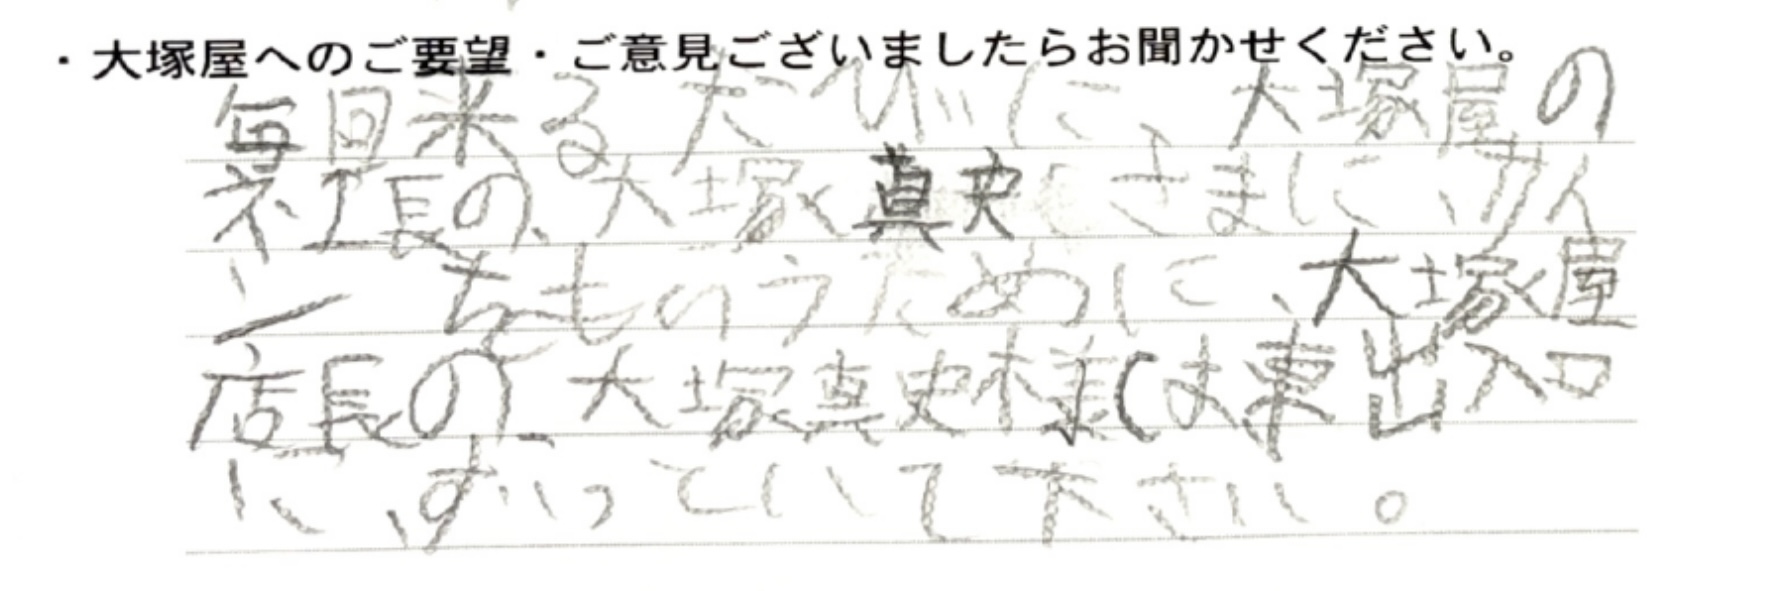 ・大塚屋へのご要望・ご意見ございましたらお聞かせください。
毎回来るたびに、大塚屋の
社長の、大塚真史さまに、サイ
ンをもらうために、大塚屋
店長の、大塚真史様は東出入口
に、ずっといて下さい。